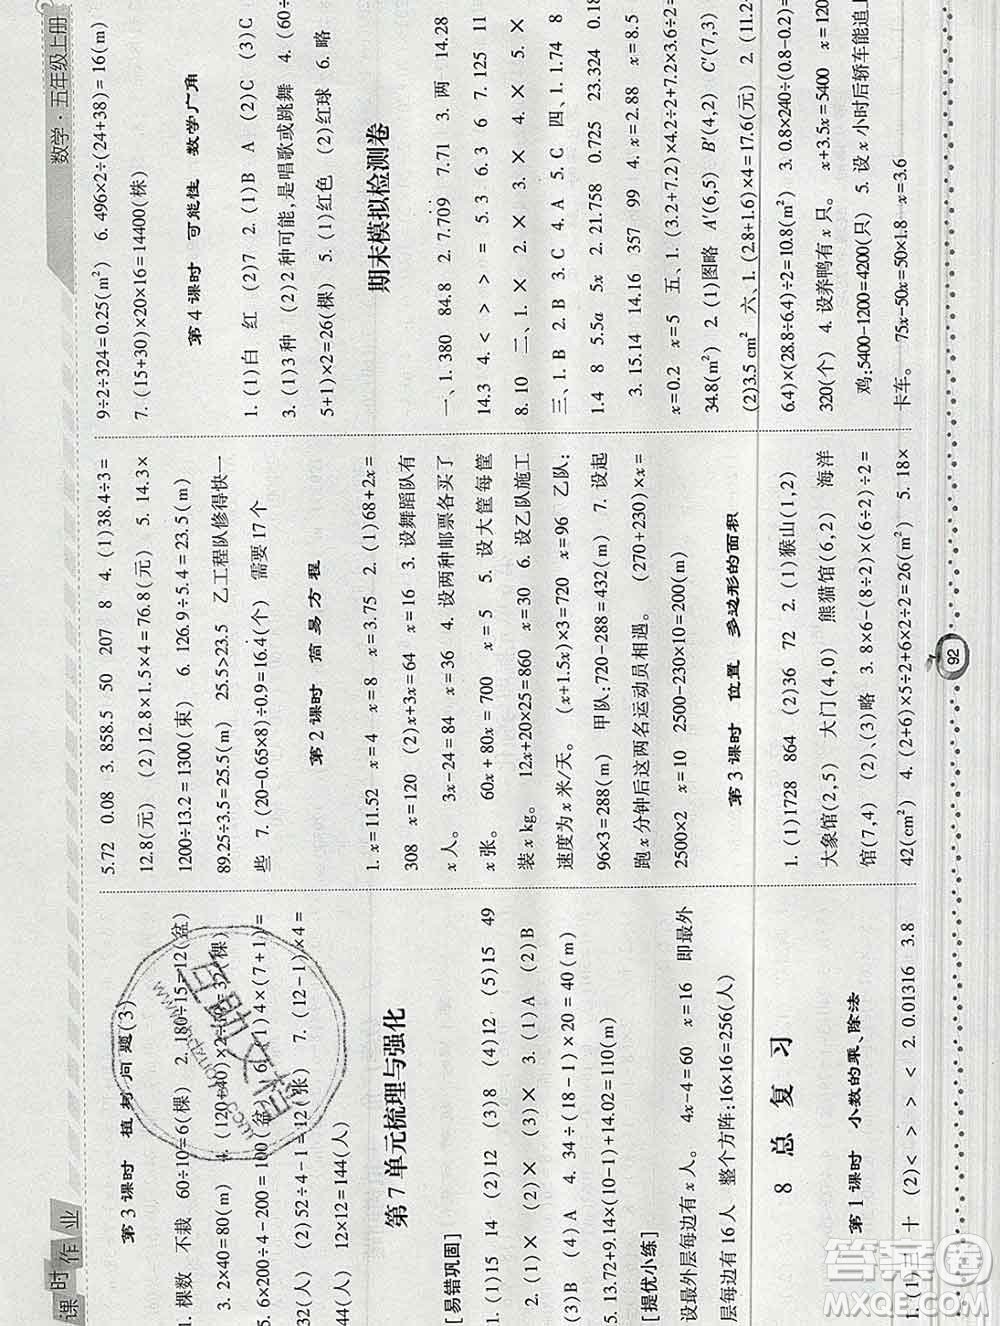 课时作业
数学·五年级上册
第3课时 植树问题(3)
1. 棵数 不栽 60÷10=6(棵) 2. 180÷15=12(盆)
3. 2×40=80(m) 4. (120+40)×2÷10=32(棵)
5. 6×200÷4-200=100(盆) 6. (1)4×(7+1)=
32(人) (2)52÷4-1=12(张) 7. (12-1)×4=
44(人) 12×12=144(人)
第7单元梳理与强化
[易错巩固]
1. (1)15 14 (2)12 (3)8 (4)12 (5)15 49
2. (1)× (2)× (3)× 3. (1)A (2)B
(3)B (4)A 4. 34÷(18-1)×20=40(m)
5. 13.72+9.14×(15-1)+14.02=110(m)
[提优小练]
设最外层每边有x人。 4x-4=60 x=16 即最外
层每边有16人 整个方阵:16×16=256(人)
8 总复习
第1课时 小数的乘、除法
1. (1)一 十 (2)< > > < 2. 0.01316 3.8
5.72 0.08 3. 858.5 50 207 8 4. (1)38.4÷3=
12.8(元) (2)12.8×1.5×4=76.8(元) 5. 14.3×
1200÷13.2=1300(束) 6. 126.9÷5.4=23.5(m)
89.25÷3.5=25.5(m) 25.5>23.5 乙工程队修得快一
些 7. (20-0.65×8)÷0.9=16.4(个) 需要17个
第2课时 简易方程
1. x=11.52 x=4 x=8 x=3.75 2. (1)68+2x=
308 x=120 (2)x+3x=64 x=16 3. 设舞蹈队有
x人。 3x-24=84 x=36 4. 设两种邮票各买了
x张。 60x+80x=700 x=5 5. 设大筐每筐
装x kg。 12x+20×25=860 x=30 6. 设乙队施工
速度为x米/天。 (x+1.5x)×3=720 x=96 乙队:
96×3=288(m) 甲队:720-288=432(m) 7. 设起
跑x分钟后这两名运动员相遇。 (270+230)x=
2500×2 x=10 2500-230×10=200(m)
第3课时 位置 多边形的面积
1. (1)1728 864 (2)36 72 2. (1)猴山(1,2)
大象馆(2,5) 大门(4,0) 熊猫馆(6,2) 海洋
馆(7,4) (2)、(3)略 3. 8×6-(8÷2)×(6÷2)÷2=
42(cm²) 4. (2+6)×5÷2+6×2÷2=26(m²) 5. 18×
9÷2÷324=0.25(m²) 6. 496×2÷(24+38)=16(m)
7. (15+30)×20×16=14400(株)
第4课时 可能性 数学广角
1. (1)白 红 (2)7 2. (1)B A (2)C (3)C
3. (1)3种 (2)2种可能,是唱歌或跳舞 4. (60÷
5+1)×2=26(棵) 5. (1)红色 (2)红球 6. 略
期末模拟检测卷
一、1. 380 84.8 2. 7.709 7.71 3. 两 14.28
14.3 4. < > > = 5. 3 6. 3 6 7. 125 11
8. 10 二、1. × 2. × 3. × 4. × 5. ×
三、1. B 2. B 3. C 4. A 5. C 四、1. 1.74 8
1.4 8 5.5a 5x 2. 21.758 0.725 23.324 0.18
3. 15.14 14.16 357 99 4. x=2.88 x=8.5
x=0.2 x=5 五、1. (3.2+7.2)×4.2÷2+7.2×3.6÷2=
34.8(m²) 2. (1)图略 A′(6,5) B′(4,2) C′(7,3)
(2)3.5 cm² 六、1. (2.8+1.6)×4=17.6(元) 2. (11.2-
6.4)×(28.8÷6.4)÷2=10.8(m²) 3. 0.8×240÷(0.8-0.2)=
320(个) 4. 设养鸭有x只。 x+3.5x=5400 x=120
鸡:5400-1200=4200(只) 5. 设x小时后轿车能追上
卡车。 75x-50x=50×1.8 x=3.6
92
答案圈
MXQE.COM